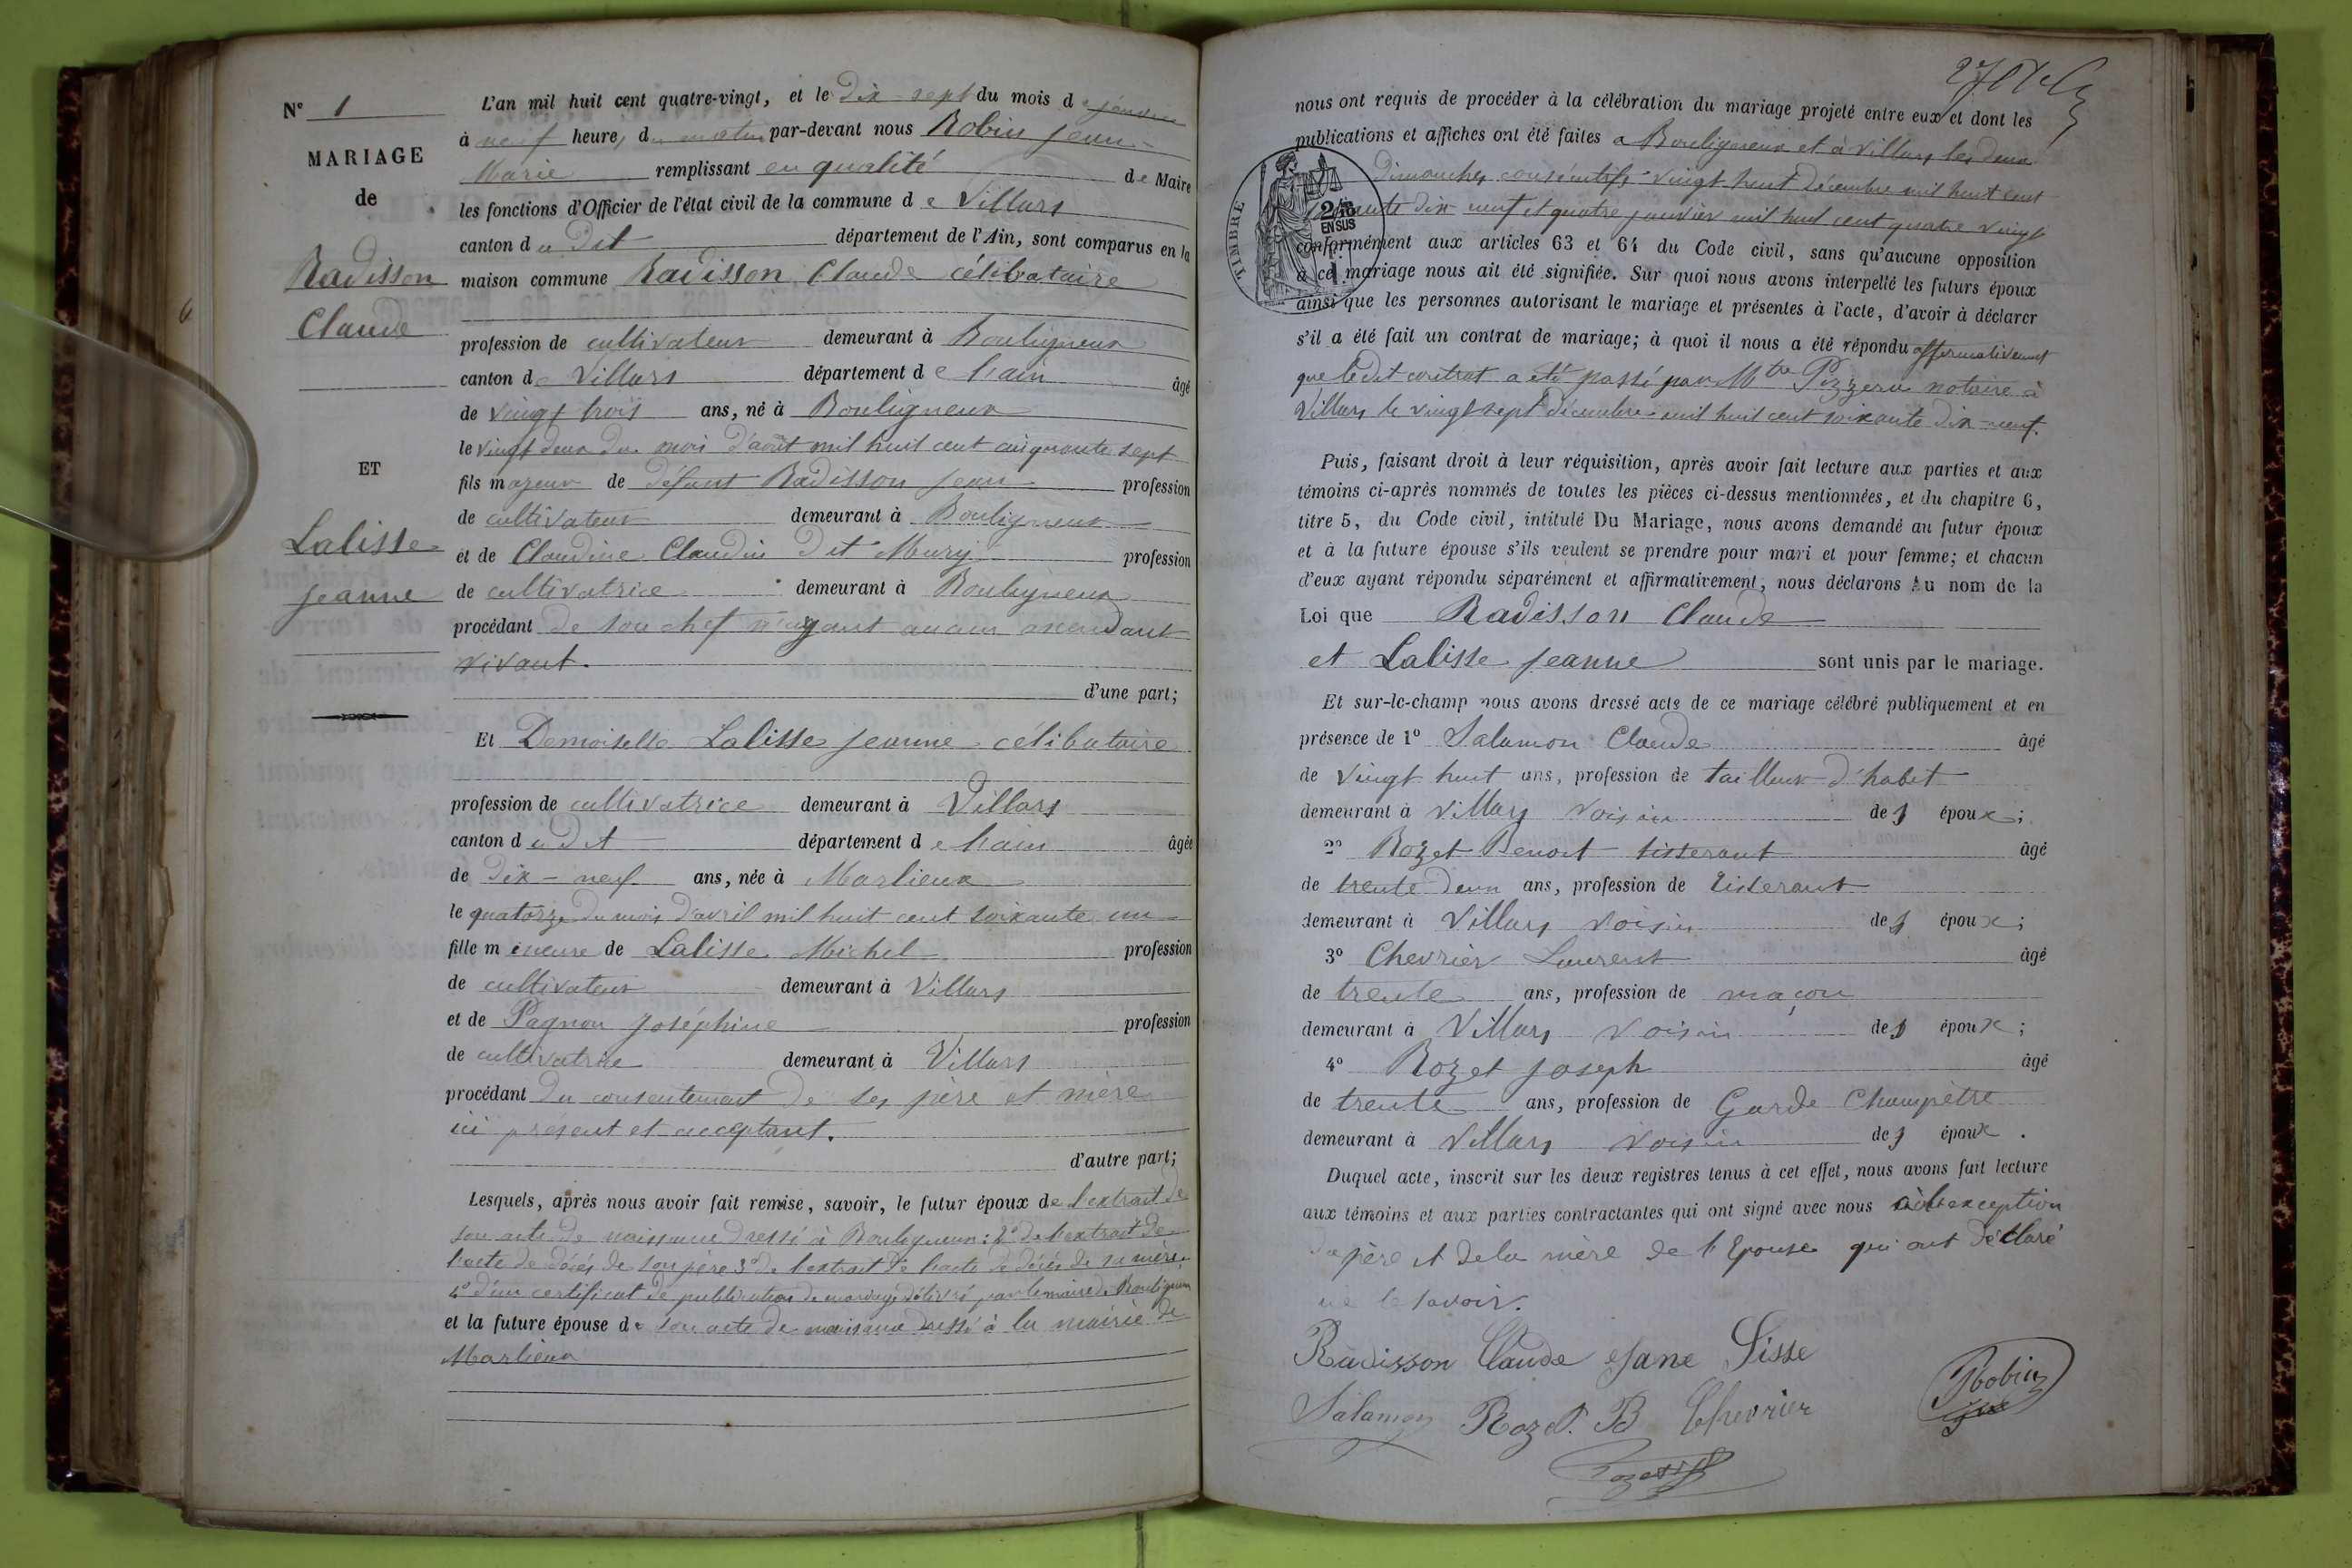 N° 1
MARIAGE
de
Radisson
Claude
ET
Lalisse
Jeanne
L'an mil huit cent quatre-vingt, et le Dix sept du mois de janvier
à neuf heures du matin par-devant nous Robin Jean-
Marie remplissant en qualité de Maire
les fonctions d'Officier de l'état civil de la commune de Villars
canton du Dit département de l'Ain, sont comparus en la
maison commune Radisson Claude célibataire
profession de cultivateur demeurant à Bouligneux
canton de Villars département de l'ain âgé
de vingt trois ans, né à Bouligneux
le vingt deux du mois d'août mil huit cent cinquante sept
fils majeur de défunt Radisson Jean profession
de cultivateur demeurant à Bouligneux
et de Claudine Claudin dit Mury profession
de cultivatrice demeurant à Bouligneux
procédant de son chef n'ayant aucun ascendant
vivant.
d'une part;
Et Demoiselle Lalisse Jeanne célibataire
profession de cultivatrice demeurant à Villars
canton du Dit département de l'ain âgée
de Dix-neuf ans, née à Marlieux
le quatorze du mois d'avril mil huit cent soixante un
fille mineure de Lalisse Michel profession
de cultivateur demeurant à Villars
et de Pagnon Joséphine profession
de cultivatrice demeurant à Villars
procédant du consentement de ses père et mère
ici présent et acceptant.
d'autre part;
Lesquels, après nous avoir fait remise, savoir, le futur époux de l'extrait de
son acte de naissance dressé à Bouligneux: 2° de l'extrait de
l'acte de décés de son père 3° de l'extrait de l'acte de décés de sa mère.
4° d'un certificat de publication de mariage délivré par le maire de Bouligneux
et la future épouse de son acte de naissance dressé à la mairie de
Marlieux
nous ont requis de procéder à la célébration du mariage projeté entre eux et dont les
publications et affiches ont été faites à Bouligneux et à Villars les deux
Dimanches consécutifs vingt huit décembre mil huit cent
soixante dix neuf et quatre janvier mil huit cent quatre vingt
conformément aux articles 63 et 64 du Code civil, sans qu'aucune opposition
à ce mariage nous ait été signifiée. Sur quoi nous avons interpellé les futurs époux
ainsi que les personnes autorisant le mariage et présentes à l'acte, d'avoir à déclarer
s'il a été fait un contrat de mariage; à quoi il nous a été répondu affirmativement
que ledit contrat a été passé par Mtre Pizzera notaire à
Villars le vingt sept décembre mil huit cent soixante dix-neuf.
TIMBRE
EN SUS
Puis, faisant droit à leur réquisition, après avoir fait lecture aux parties et aux
témoins ci-après nommés de toutes les pièces ci-dessus mentionnées, et du chapitre 6,
titre 5, du Code civil, intitulé Du Mariage, nous avons demandé au futur époux
et à la future épouse s'ils veulent se prendre pour mari et pour femme; et chacun
d'eux ayant répondu séparément et affirmativement, nous déclarons Au nom de la
Loi que Radisson Claude
et Lalisse Jeanne sont unis par le mariage.
Et sur-le-champ nous avons dressé acte de ce mariage célébré publiquement et en
présence de 1° Salamon Claude âgé
de vingt huit ans, profession de tailleur d'habit
demeurant à Villars voisin des époux;
2° Rozet Benoit tisserant âgé
de trente deux ans, profession de tisserant
demeurant à Villars voisin des époux;
3° Chevrier Laurent âgé
de trente ans, profession de maçon
demeurant à Villars voisin des époux;
4° Rozet Joseph âgé
de trente ans, profession de Garde Champêtre
demeurant à Villars voisin des époux.
Duquel acte, inscrit sur les deux registres tenus à cet effet, nous avons fait lecture
aux témoins et aux parties contractantes qui ont signé avec nous à l'exception
du père et de la mère de l'épouse qui ont déclaré
ne le savoir.
Radisson Claude Jane Lisse
Salamon Rozet. B Chevrier
Robin